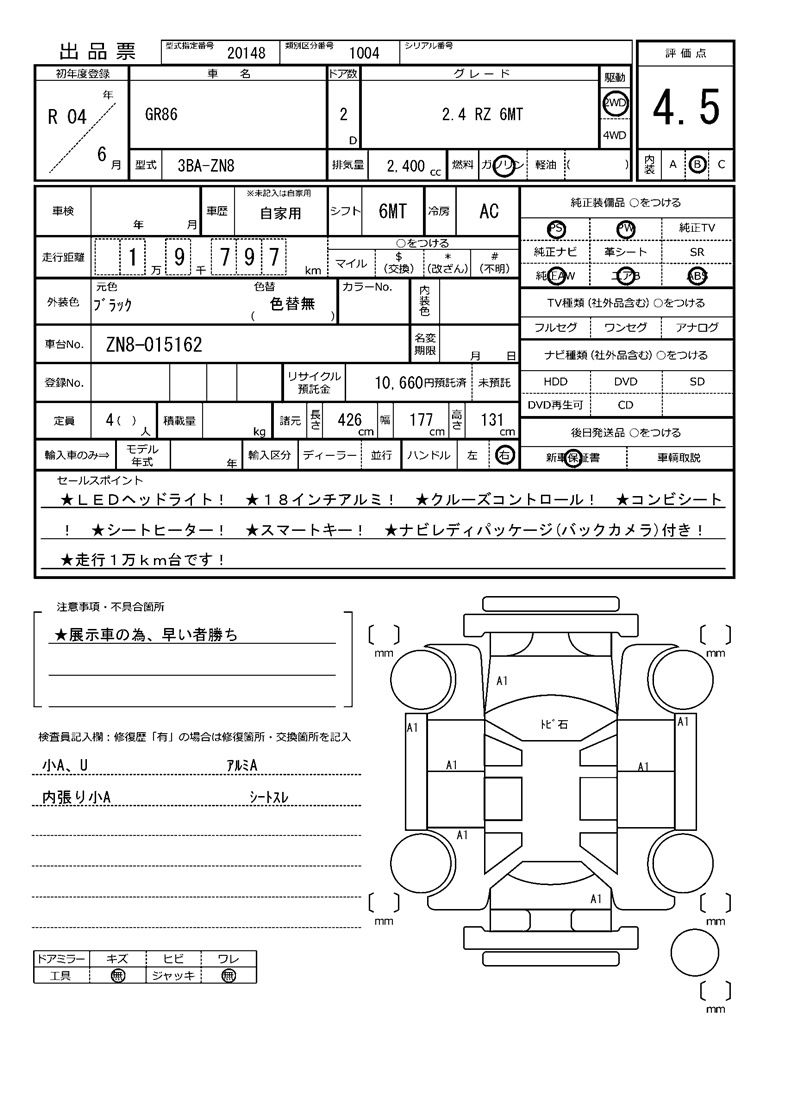 出品票 型式指定番号 20148 類別区分番号 1004 シリアル番号 評価点
初年度登録 車名 ドア数 グレード 駆動
R 04 年 6 月 GR86 2 D 2.4 RZ 6MT 2WD 4WD 4.5
型式 3BA-ZN8 排気量 2.400 cc 燃料 ガソリン 軽油 ( ) 内装 A B C
車検 年 月 車歴 ※未記入は自家用 自家用 シフト 6MT 冷房 AC
走行距離 1 万 9 千 7 9 7 km ○をつける マイル $ (交換) * (改ざん) # (不明)
外装色 元色 ブラック 色替 ( 色替無 ) カラーNo. 内装色
車台No. ZN8-015162 名変期限 月 日
登録No. リサイクル預託金 10,660円預託済 未預託
定員 4( ) 人 積載量 kg 諸元 長さ 426 cm 幅 177 cm 高さ 131 cm
輸入車のみ⇒ モデル年式 年 輸入区分 ディーラー 並行 ハンドル 左 右
純正装備品 ○をつける
PS PW 純正TV
純正ナビ 革シート SR
純正AW エアB ABS
TV種類(社外品含む)○をつける
フルセグ ワンセグ アナログ
ナビ種類(社外品含む)○をつける
HDD DVD SD
DVD再生可 CD
後日発送品 ○をつける
新車保証書 車輌取説
セールスポイント
★LEDヘッドライト! ★18インチアルミ! ★クルーズコントロール! ★コンビシート
! ★シートヒーター! ★スマートキー! ★ナビレディパッケージ(バックカメラ)付き!
★走行1万km台です!
注意事項・不具合箇所
★展示車の為、早い者勝ち
検査員記入欄:修復歴「有」の場合は修復箇所・交換箇所を記入
小A、U アルミA
内張り小A シートスレ
ドアミラー キズ ヒビ ワレ
工具 無 ジャッキ 無
mm mm
A1
トビ石
A1 A1
A1 A1
A1
A1
mm mm
mm